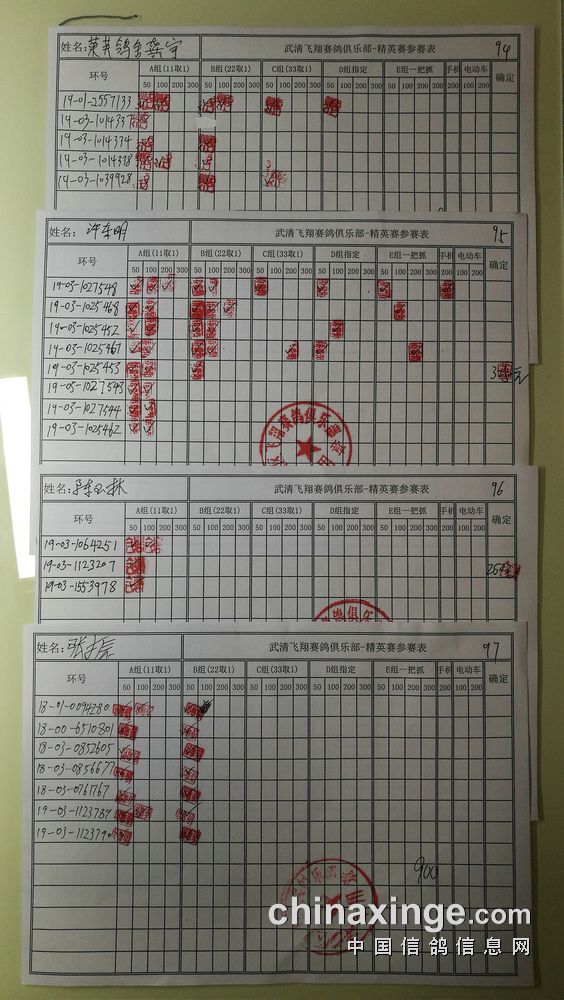 姓名: 莱芙鸽舍龚宇 武清飞翔赛鸽俱乐部-精英赛参赛表 94
环号 A组(11取1) B组(22取1) C组(33取1) D组指定 E组一把抓 手机 电动车 确定
50 100 200 300 50 100 200 300 50 100 200 300 50 100 200 300 50 100 200 300 200 100 200
19-01-2557133
19-03-1014337
19-03-1014334
19-03-1014338
19-03-1039928
姓名: 许东明 武清飞翔赛鸽俱乐部-精英赛参赛表 95
环号 A组(11取1) B组(22取1) C组(33取1) D组指定 E组一把抓 手机 电动车 确定
50 100 200 300 50 100 200 300 50 100 200 300 50 100 200 300 50 100 200 300 200 100 200
19-03-1027548
19-03-1025468
19-03-1025452
19-03-1025467
19-03-1025453
19-03-1027543
19-03-1027544
19-03-1025462
飞翔赛鸽俱乐部
姓名: 林 武清飞翔赛鸽俱乐部-精英赛参赛表 96
环号 A组(11取1) B组(22取1) C组(33取1) D组指定 E组一把抓 手机 电动车 确定
50 100 200 300 50 100 200 300 50 100 200 300 50 100 200 300 50 100 200 300 200 100 200
19-03-1064251
19-03-1123207
19-03-1553978
姓名: 张 武清飞翔赛鸽俱乐部-精英赛参赛表 97
环号 A组(11取1) B组(22取1) C组(33取1) D组指定 E组一把抓 手机 电动车 确定
50 100 200 300 50 100 200 300 50 100 200 300 50 100 200 300 50 100 200 300 200 100 200
18-01-0094280
18-00-6510801
18-03-0852605
18-03-0856677
18-03-0761767
19-03-1123789
19-03-1123790
900
chinaxinge.com
中国信鸽信息网